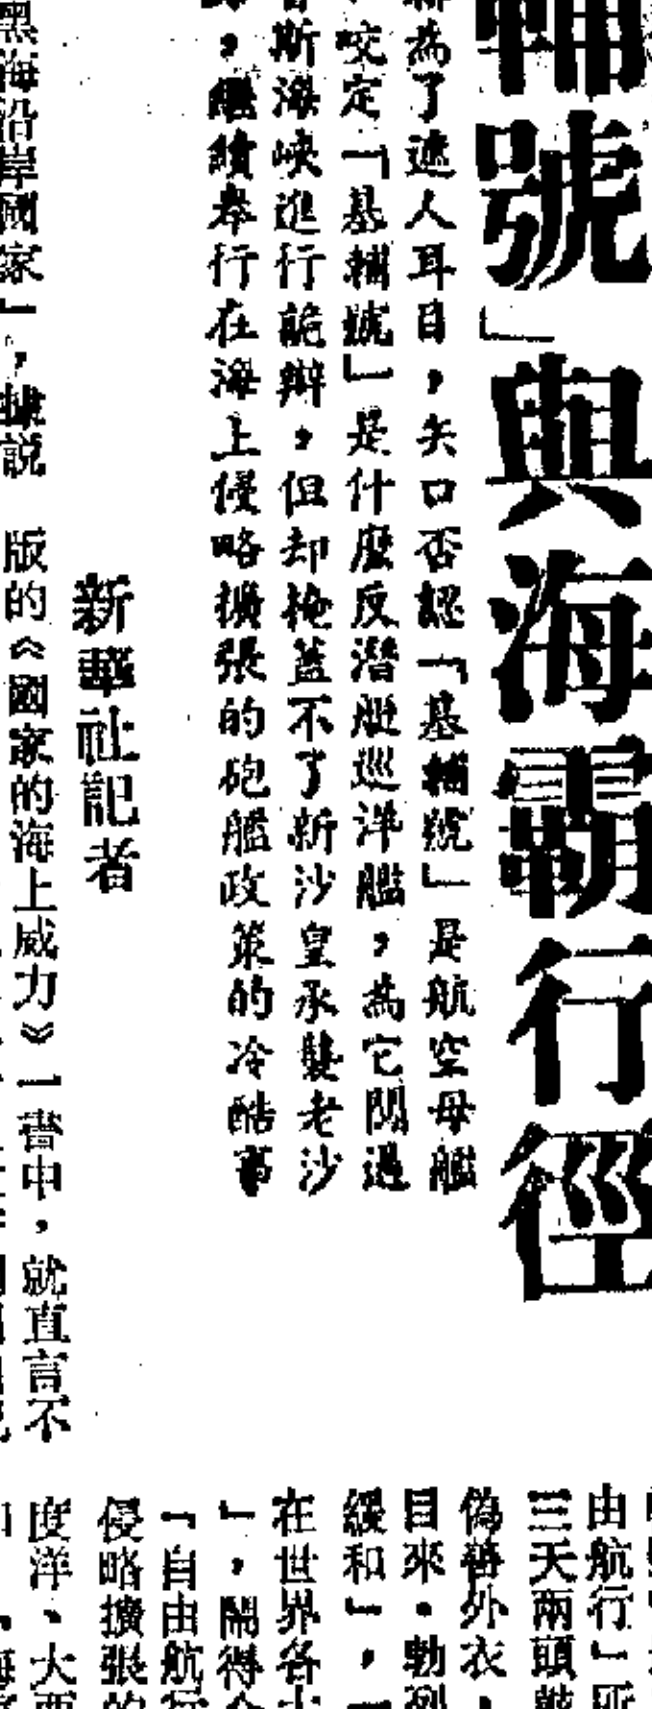 輔號」與海霸行徑
為了遮人耳目，矢口否認「基輔號」是航空母艦
咬定「基輔號」是什麼反潛艇巡洋艦，為它闖過
斯海峽進行詭辯，但却掩蓋不了新沙皇承襲老沙
，繼續舉行在海上侵略擴張的砲艦政策的冷酷事
新華社記者
黑海沿岸國家」，據説
版的《國家的海上威力》一書中，就直言不
由航行」
三天兩頭
偽善外衣，
目來。勃列
緩和」，
在世界各
」，鬧得
「自由航行
侵略擴張的
度洋、大西